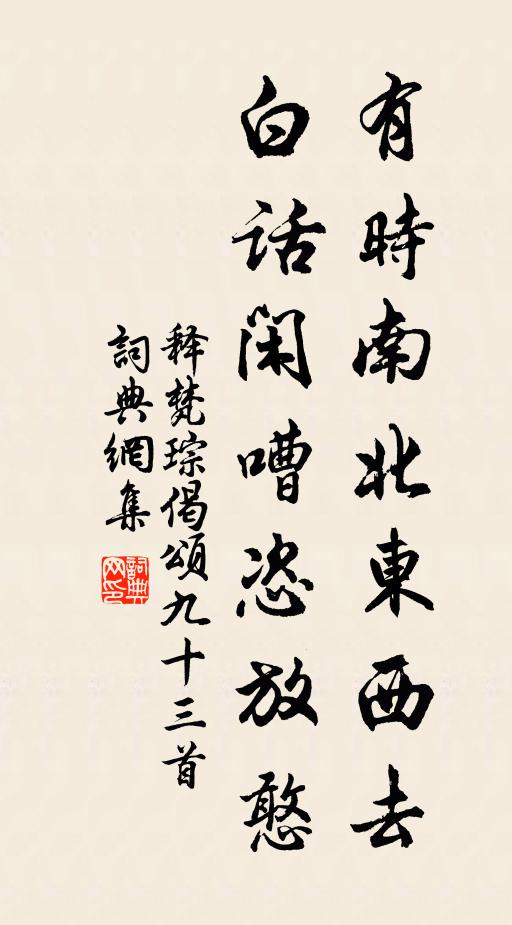 有時南北東西去
白話閑嘈恣放憨
释梵琮偈頌九十三首
詞典網集
詞典网印